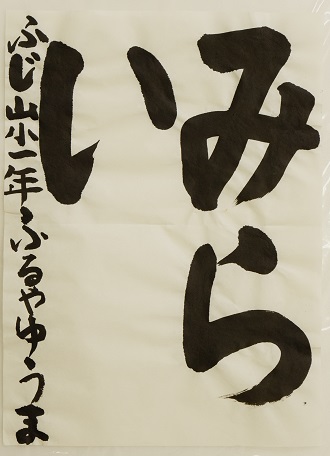 みら
い
ふじ山小一年ふるやゆうま